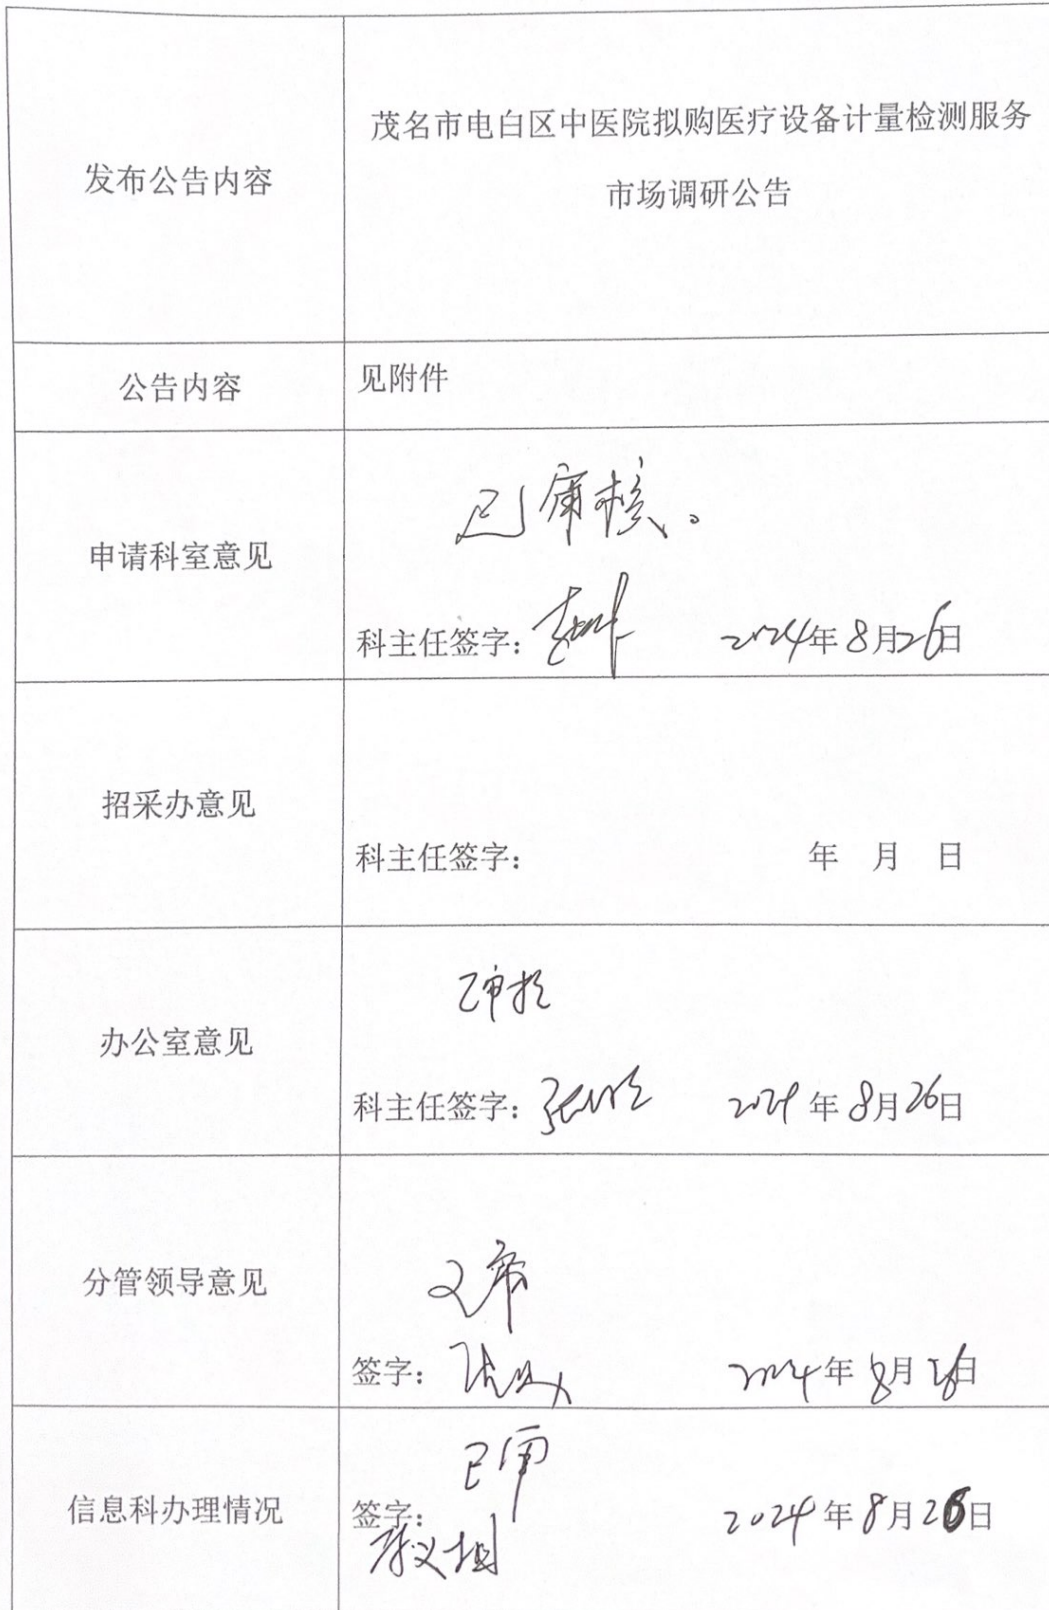 发布公告内容
茂名市电白区中医院拟购医疗设备计量检测服务
市场调研公告
公告内容
见附件
申请科室意见
已审核。
科主任签字: 2024年8月26日
招采办意见
科主任签字: 年 月 日
办公室意见
已审核
科主任签字: 2024年8月26日
分管领导意见
已审
签字: 2024年8月26日
信息科办理情况
已审
签字: 2024年8月26日